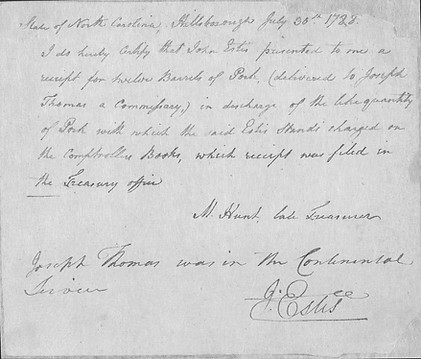 State of North Carolina, Hillsborough July 30th 1788.
I do hereby Certify that John Estis presented to me a
receipt for twelve Barrels of Pork, (delivered to Joseph
Thomas a Commissary,) in discharge of the like quantity
of Pork with which the said Estis Stands charged on
the Comptrollers Books, which receipt was filed in
the Treasury office
M. Hunt, late Treasurer
Joseph Thomas was in the Continental
Service
J. Estis